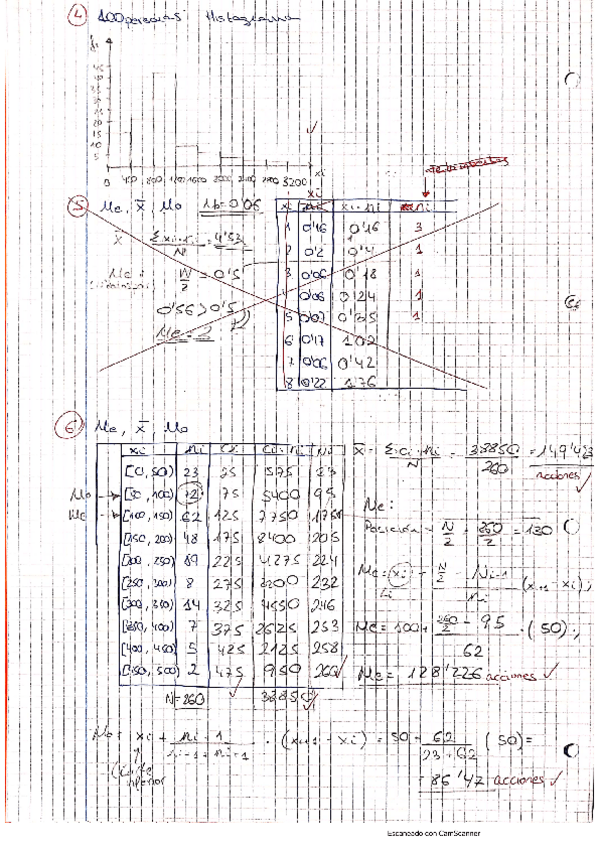 4 100 personas Histograma
5
0 400 800 1200 1600 2000 2400 2800 3200 xi
5 Me, x̄, Mo
xi xi·ni ni
x̄ Σxi·ni/N = 4'53
1 0'46 0'46 3
2 0'2 0'4 1
Me: N/2 = 0'5
3 0'06 0'18 1
0'56 > 0'5
4 0'06 0'24 1
5 0'07 0'35 1
Me = 2
6 0'17 1'02
7 0'06 0'42
8 0'22 1'76
6 Me, x̄, Mo
xi ni Ci Ci·ni Ni
[0, 50) 23 25 575 23
Mo → [50, 100) 72 75 5400 95
Me → [100, 150) 62 125 7750
[150, 200) 48 175 8400 205
[200, 250) 19 225 4275 224
[250, 300) 8 275 2200 232
[300, 350) 14 325 4550 246
[350, 400) 7 375 2625 253
[400, 450) 5 425 2125 258
[450, 500) 2 475 950 260
N = 260
x̄ = Σci·ni/N = 38850/260 = 149'423 acciones
Me:
Posición = N/2 = 260/2 = 130
Me = xi + (N/2 - Ni-1)/ni (xi+1 - xi);
Li
Me = 100 + (260/2 - 95)/62 · (50);
Me = 128'226 acciones
Mo = xi + ni+1/(ni-1 + ni+1) · (xi+1 - xi) = 50 + 62/(23+62) (50) =
inferior
= 86'47 acciones
Escaneado con CamScanner